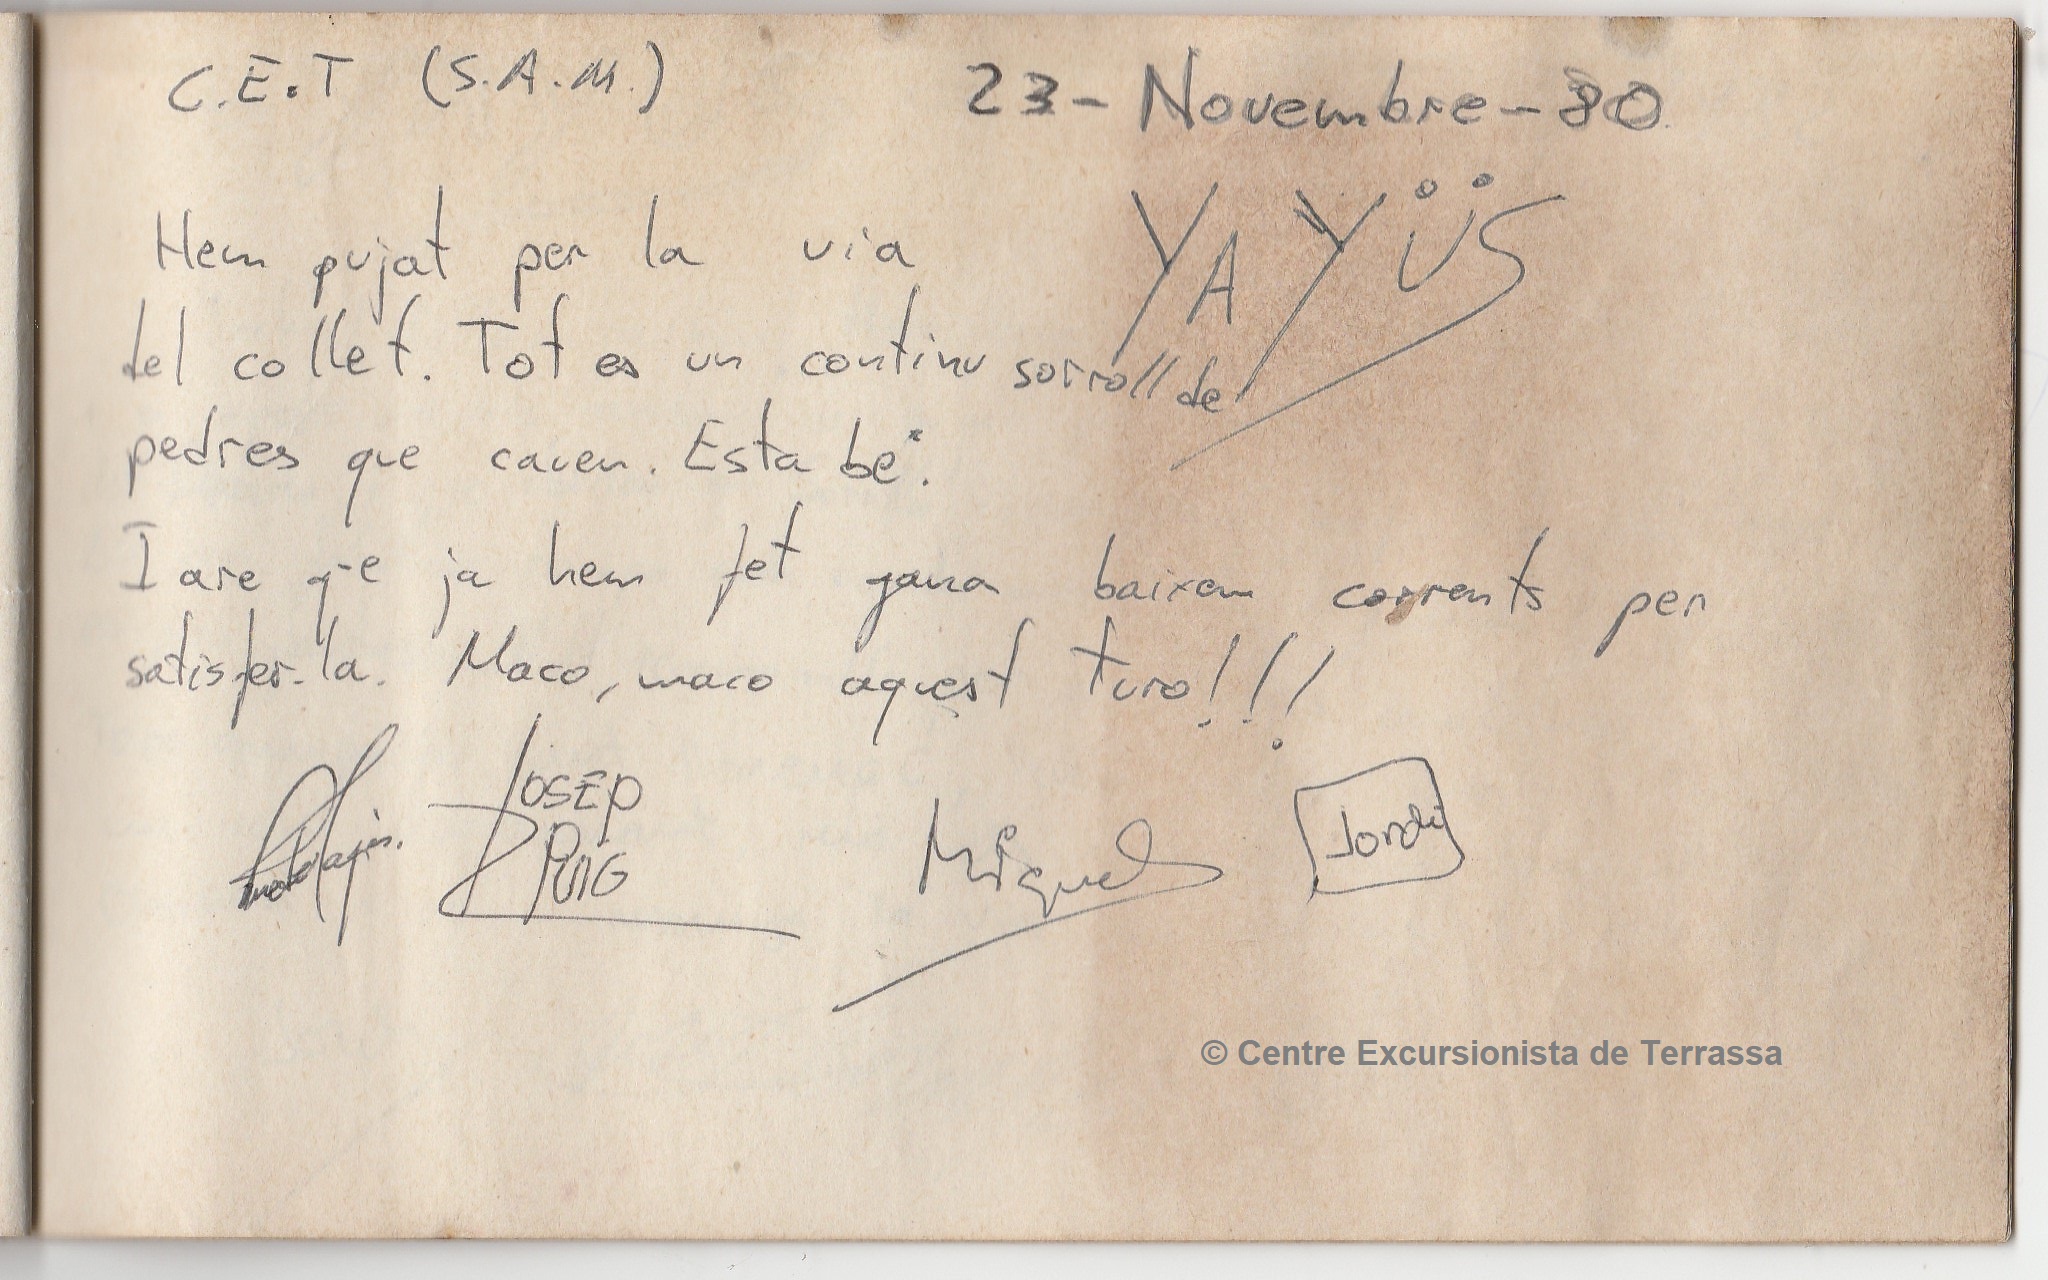 C.E.T (S.A.M.) 23-Novembre-80
YAYÜS
Hem pujat per la via
del collet. Tot es un continu sorroll de
pedres que cauen. Esta be.
I are que ja hem fet gana baixem corrents per
satisfer-la. Maco, maco aquest turo!!!
JOSEP
PUIG
Miquel
Jordi
© Centre Excursionista de Terrassa